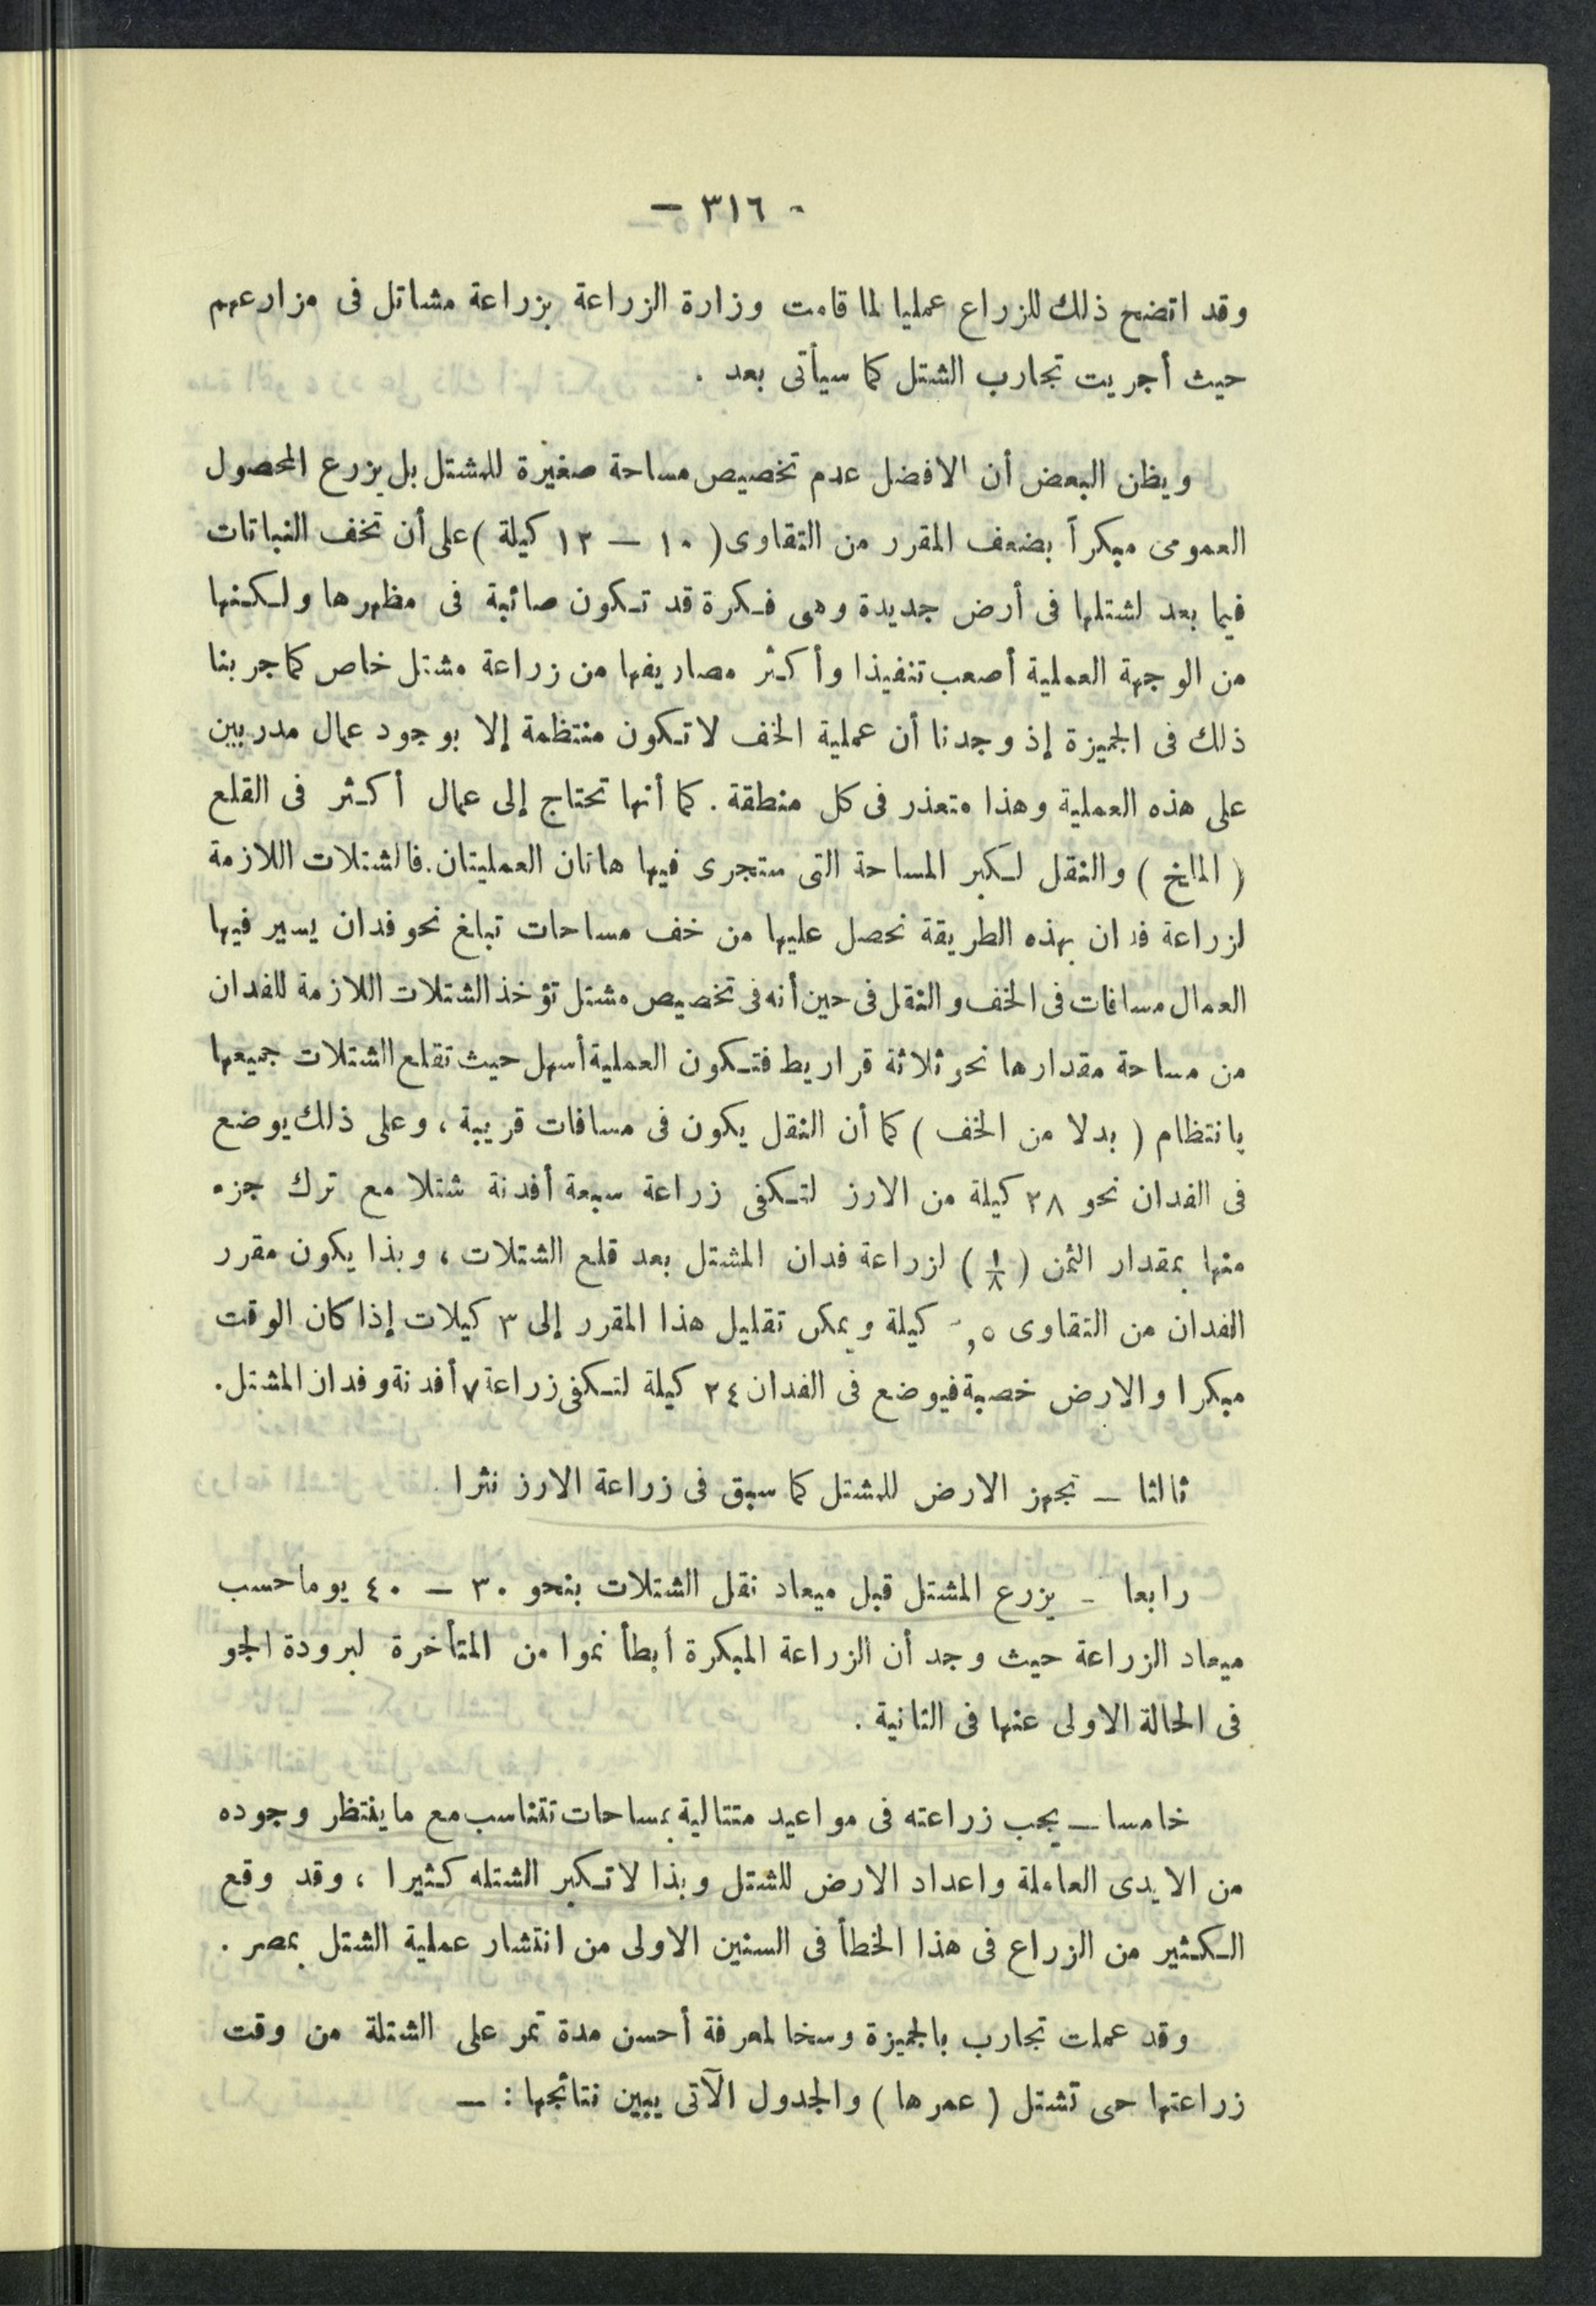 - ٣١٦ -
وقد اتضح ذلك للزراع عمليا لما قامت وزارة الزراعة بزراعة مشاتل فى مزارعهم
حيث أجريت تجارب الشتل كما سيأتى بعد .
ويظن البعض أن الافضل عدم تخصيص مساحة صغيرة للمشتل بل يزرع المحصول
العمومى مبكراً بضعف المقرر من التقاوى ( ١٠ — ١٢ كيلة ) على أن تخف النباتات
فيما بعد لشتلها فى أرض جديدة وهى فكرة قد تكون صائبة فى مظهرها ولكنها
من الوجهة العملية أصعب تنفيذا وأكثر مصاريفها من زراعة مشتل خاص كما جربنا
ذلك فى الجميزة إذ وجدنا أن عملية الخف لا تكون منتظمة إلا بوجود عمال مدربين
على هذه العملية وهذا متعذر فى كل منطقة . كما أنها تحتاج إلى عمال أكثر فى القلع
( الملخ ) والنقل لكبر المساحة التى ستجرى فيها هاتان العمليتان . فالشتلات اللازمة
لزراعة فدان بهذه الطريقة نحصل عليها من خف مساحات تبلغ نحو فدان يسير فيها
العمال مسافات فى الخف والنقل فى حين أنه فى تخصيص مشتل تؤخذ الشتلات اللازمة للفدان
من مساحة مقدارها نحو ثلاثة قراريط فتكون العملية أسهل حيث تقلع الشتلات جميعها
بانتظام ( بدلا من الخف ) كما أن النقل يكون فى مسافات قريبة ، وعلى ذلك يوضع
فى الفدان نحو ٢٨ كيلة من الارز لتكفى زراعة سبعة أفدنة شتلا مع ترك جزء
منها بمقدار الثمن ( ١/٨ ) لزراعة فدان المشتل بعد قلع الشتلات ، وبذا يكون مقرر
الفدان من التقاوى كيلة ويمكن تقليل هذا المقرر إلى ٣ كيلات إذا كان الوقت
مبكرا والارض خصبة فيوضع فى الفدان ٢٤ كيلة لتكفى زراعة ٧ أفدنة وفدان المشتل .
ثالثا — تجهز الارض للمشتل كما سبق فى زراعة الارز نثرا .
رابعا - يزرع المشتل قبل ميعاد نقل الشتلات بنحو ٣٠ — ٤٠ يوما حسب
ميعاد الزراعة حيث وجد أن الزراعة المبكرة أبطأ نموا من المتأخرة لبرودة الجو
فى الحالة الاولى عنها فى الثانية .
خامسا — يجب زراعته فى مواعيد متتالية بمساحات تتناسب مع ما ينتظر وجوده
من الايدى العاملة واعداد الارض للشتل وبذا لا تكبر الشتله كثيرا ، وقد وقع
الكثير من الزراع فى هذا الخطأ فى السنين الاولى من انتشار عملية الشتل بمصر .
وقد عملت تجارب بالجميزة وسخا لمعرفة أحسن مدة تمر على الشتلة من وقت
زراعتها حى تشتل ( عمرها ) والجدول الآتى يبين نتائجها : —